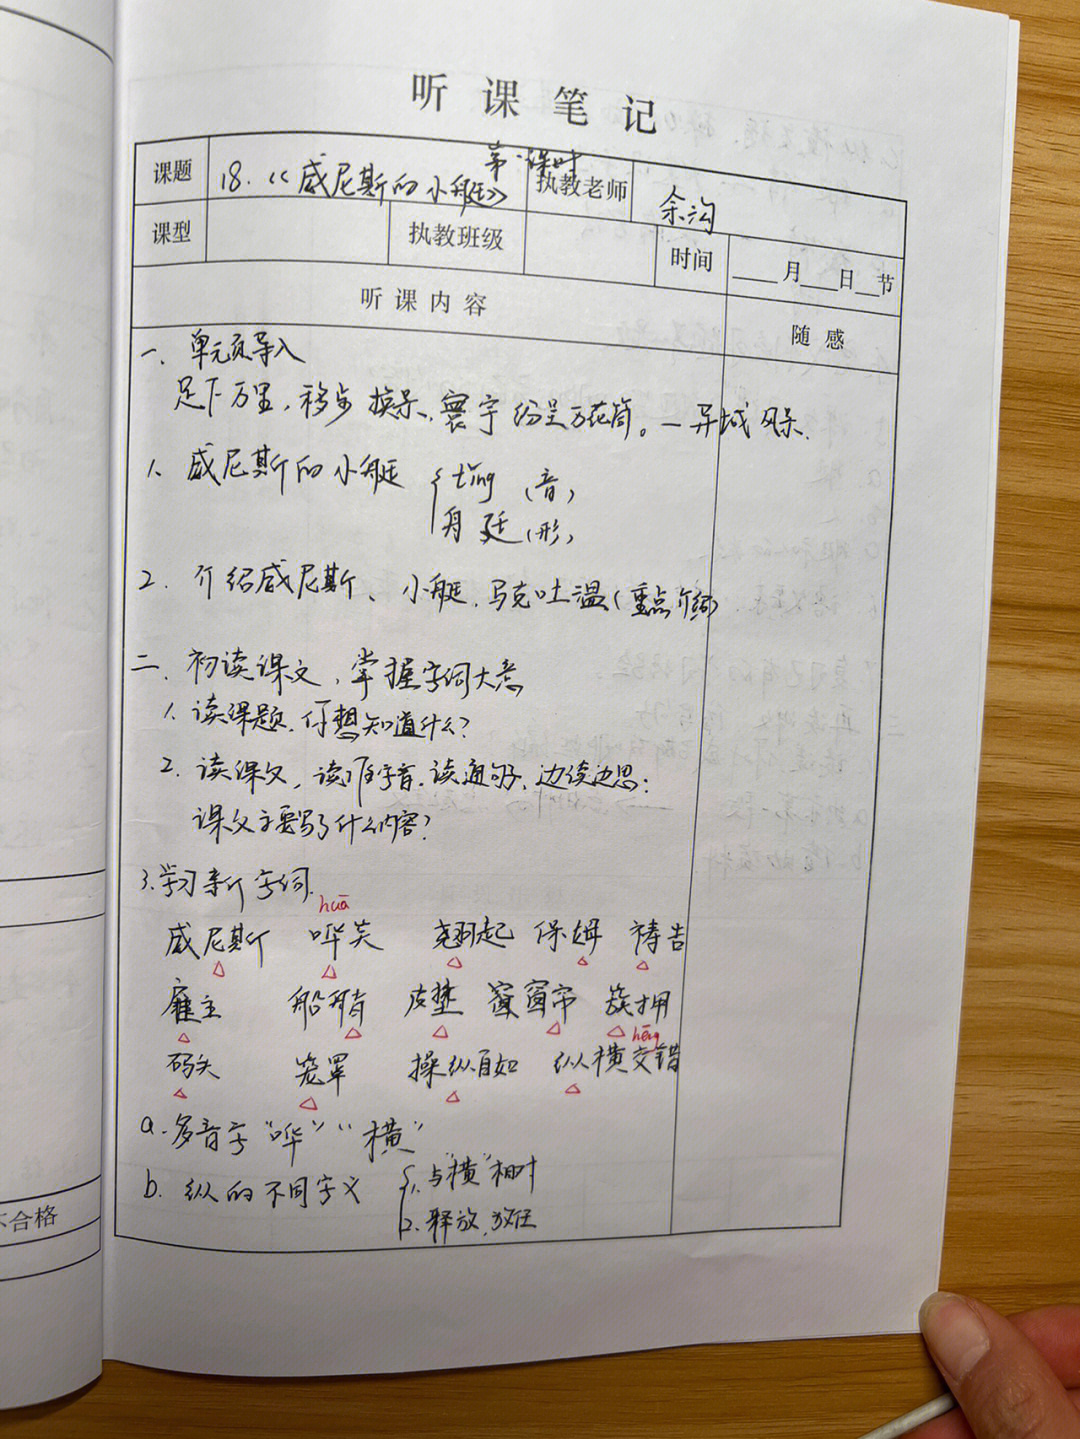 听课笔记
第一课时
课题 18.《威尼斯的小艇》 执教老师 余沟
课型 执教班级 时间 月 日 节
听课内容 随感
一、单元页导入
足下万里，移步换景，寰宇纷呈万花筒。—异域风景.
1、威尼斯的小艇 { tǐng（音）
舟 廷（形）
2. 介绍威尼斯、小艇、马克吐温（重点介绍）
二、初读课文，掌握字词大意
1. 读课题，你想知道什么？
2. 读课文，读准字音，读通句子，边读边思：
课文主要写了什么内容？
3.学习新个字词.
huā
威尼斯 哗笑 翘起 保姆 祷告
雇主 船艄 皮垫 窗窗帘 簇拥
héng
码头 笼罩 操纵自如 纵横交错
a.多音字“哗”“横”
b. 纵的不同字义 { 1. 与“横”相对
2. 释放，放任
不合格